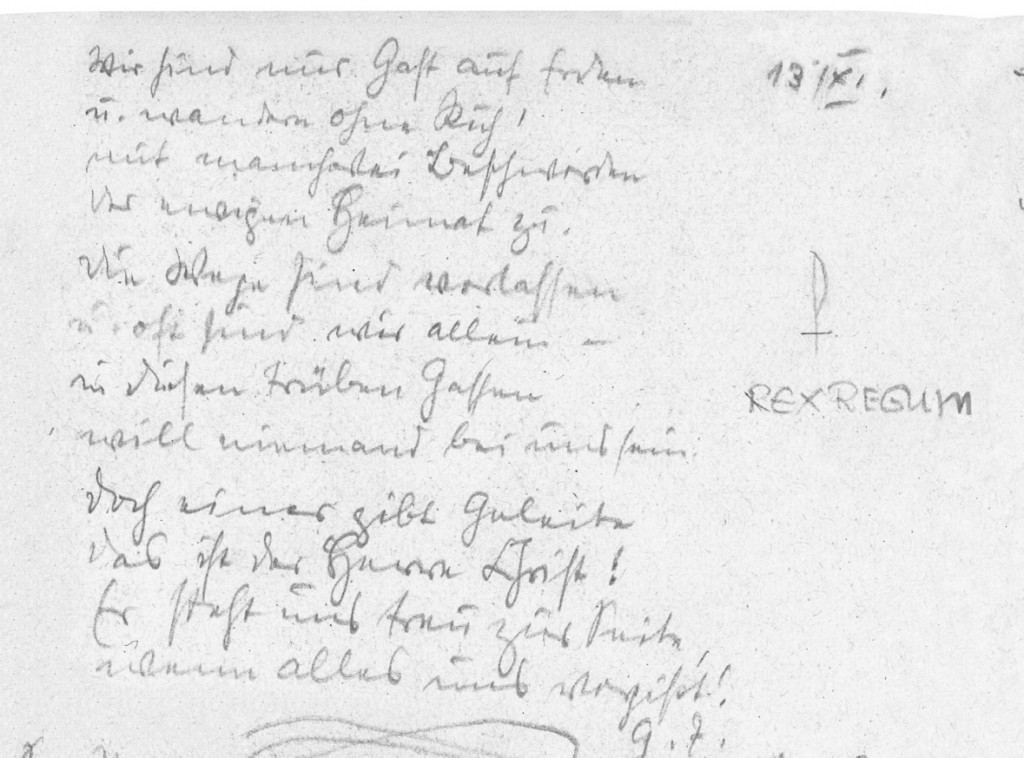 Wir sind nur Gast auf Erden
u. wandern ohne Ruh'
mit mancherlei Beschwerden
der ewigen Heimat zu.
Die Wege sind verlassen
u. oft sind wir allein –
in diesen trüben Gassen
will niemand bei uns sein.
Doch einer gibt Geleite
das ist der Herre Christ!
Er steht uns treu zur Seite,
wenn alles uns vergißt!
13/XI.
REX REGUM